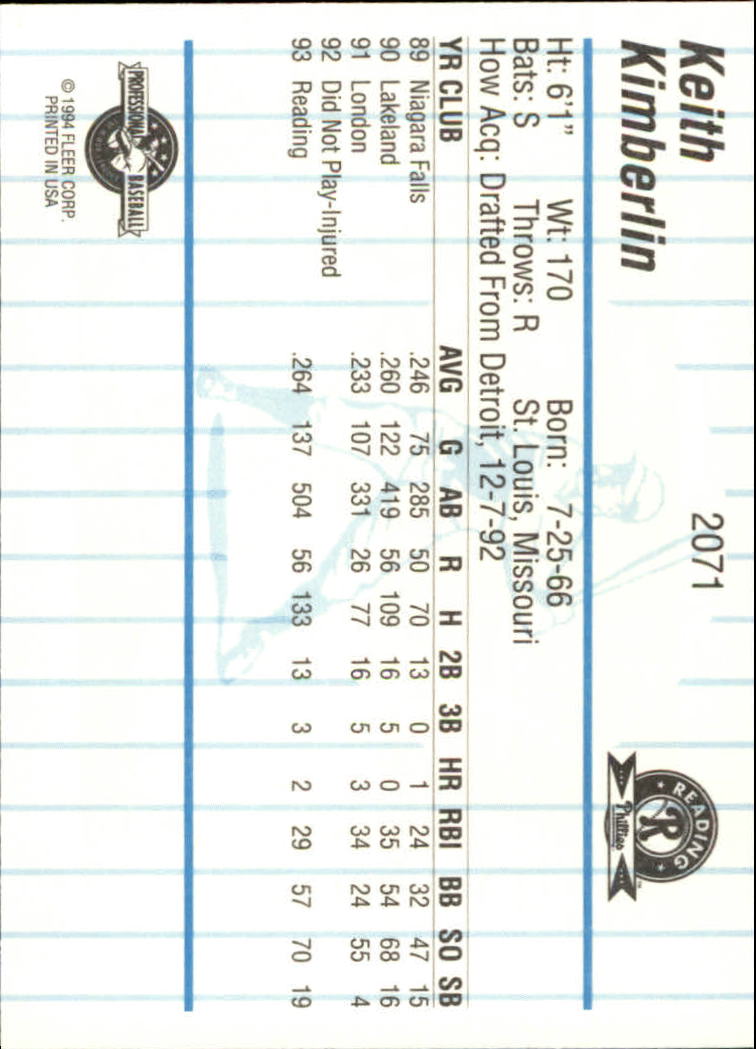 Keith
Kimberlin
2071
READING
R
Phillies
™
Ht: 6'1" Wt: 170 Born: 7-25-66
Bats: S Throws: R St. Louis, Missouri
How Acq: Drafted From Detroit, 12-7-92
YR CLUB AVG G AB R H 2B 3B HR RBI BB SO SB
89 Niagara Falls .246 75 285 50 70 13 0 1 24 32 47 15
90 Lakeland .260 122 419 56 109 16 5 0 35 54 68 16
91 London .233 107 331 26 77 16 5 3 34 24 55 4
92 Did Not Play-Injured
93 Reading .264 137 504 56 133 13 3 2 29 57 70 19
PROFESSIONAL BASEBALL
© 1994 FLEER CORP.
PRINTED IN USA